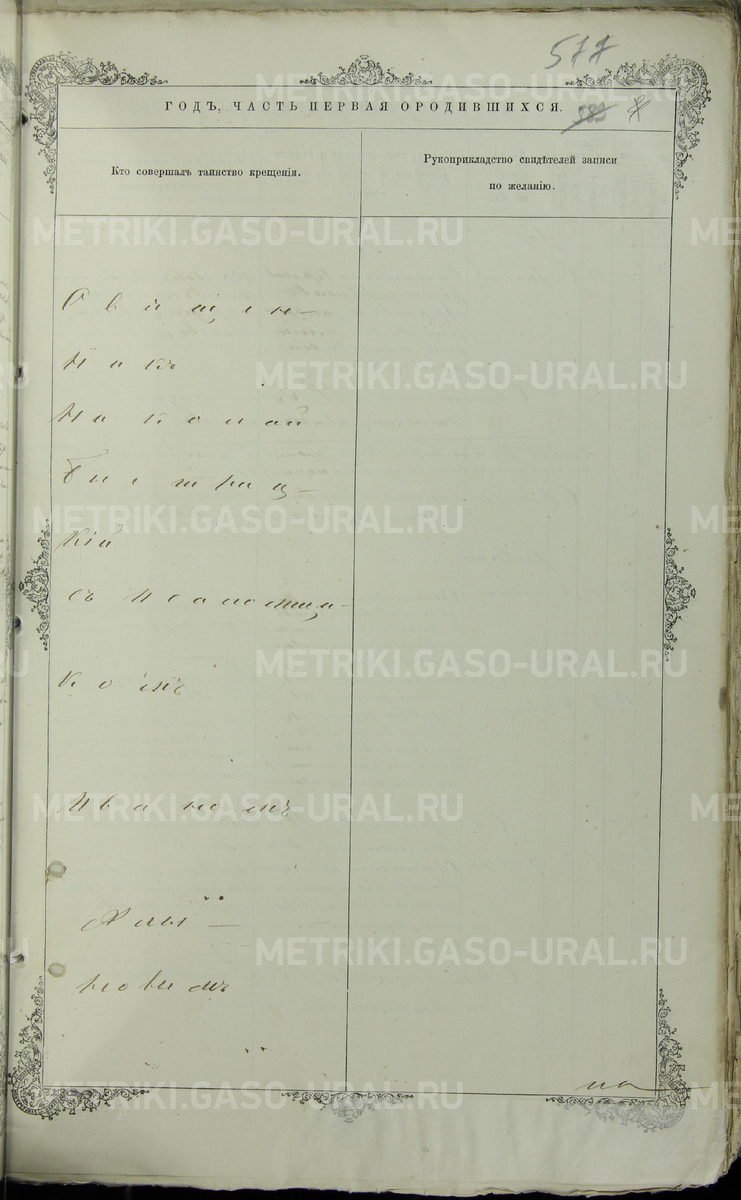 577
ГОДЪ, ЧАСТЬ ПЕРВАЯ О РОДИВШИХСЯ.
585
Кто совершалъ таинство крещенія.
Рукоприкладство свидѣтелей записи
по желанію.
Священ-
никъ
Николай
Быстриц-
кій
съ псаломщи-
комъ
Иваномъ
новымъ
METRIKI.GASO-URAL.RU